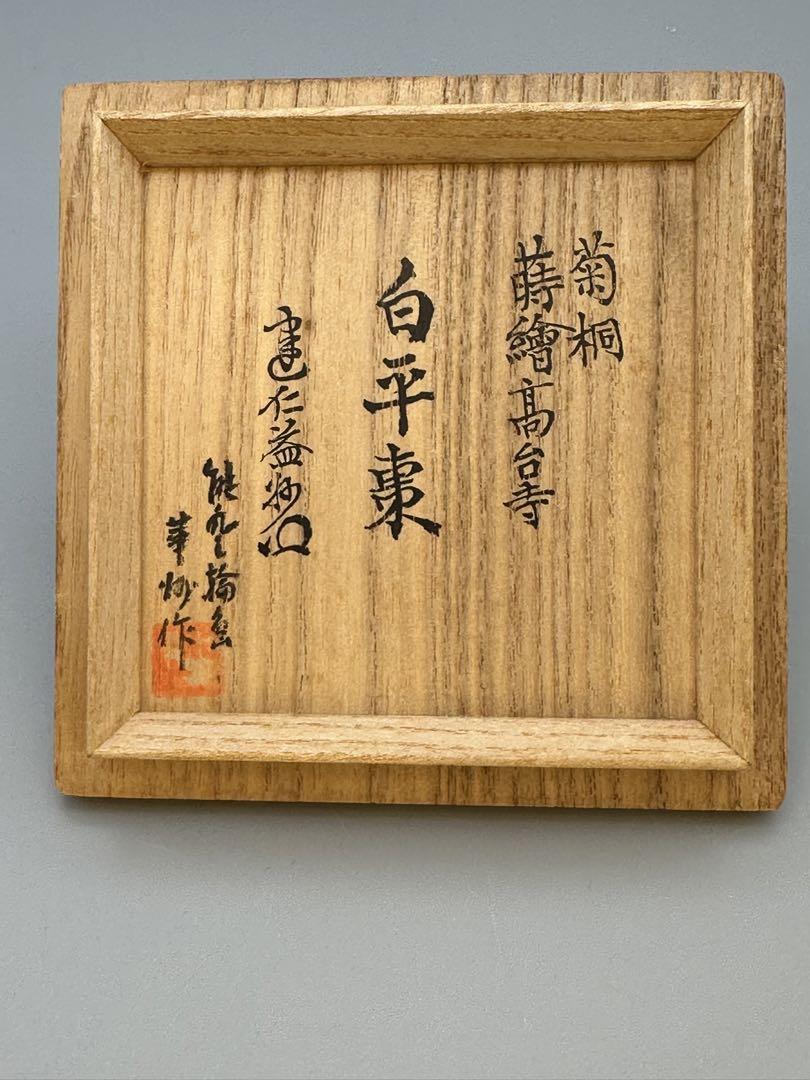 菊桐
蒔繪高台寺
白平棗
建仁益州
能登輪島
華妙作